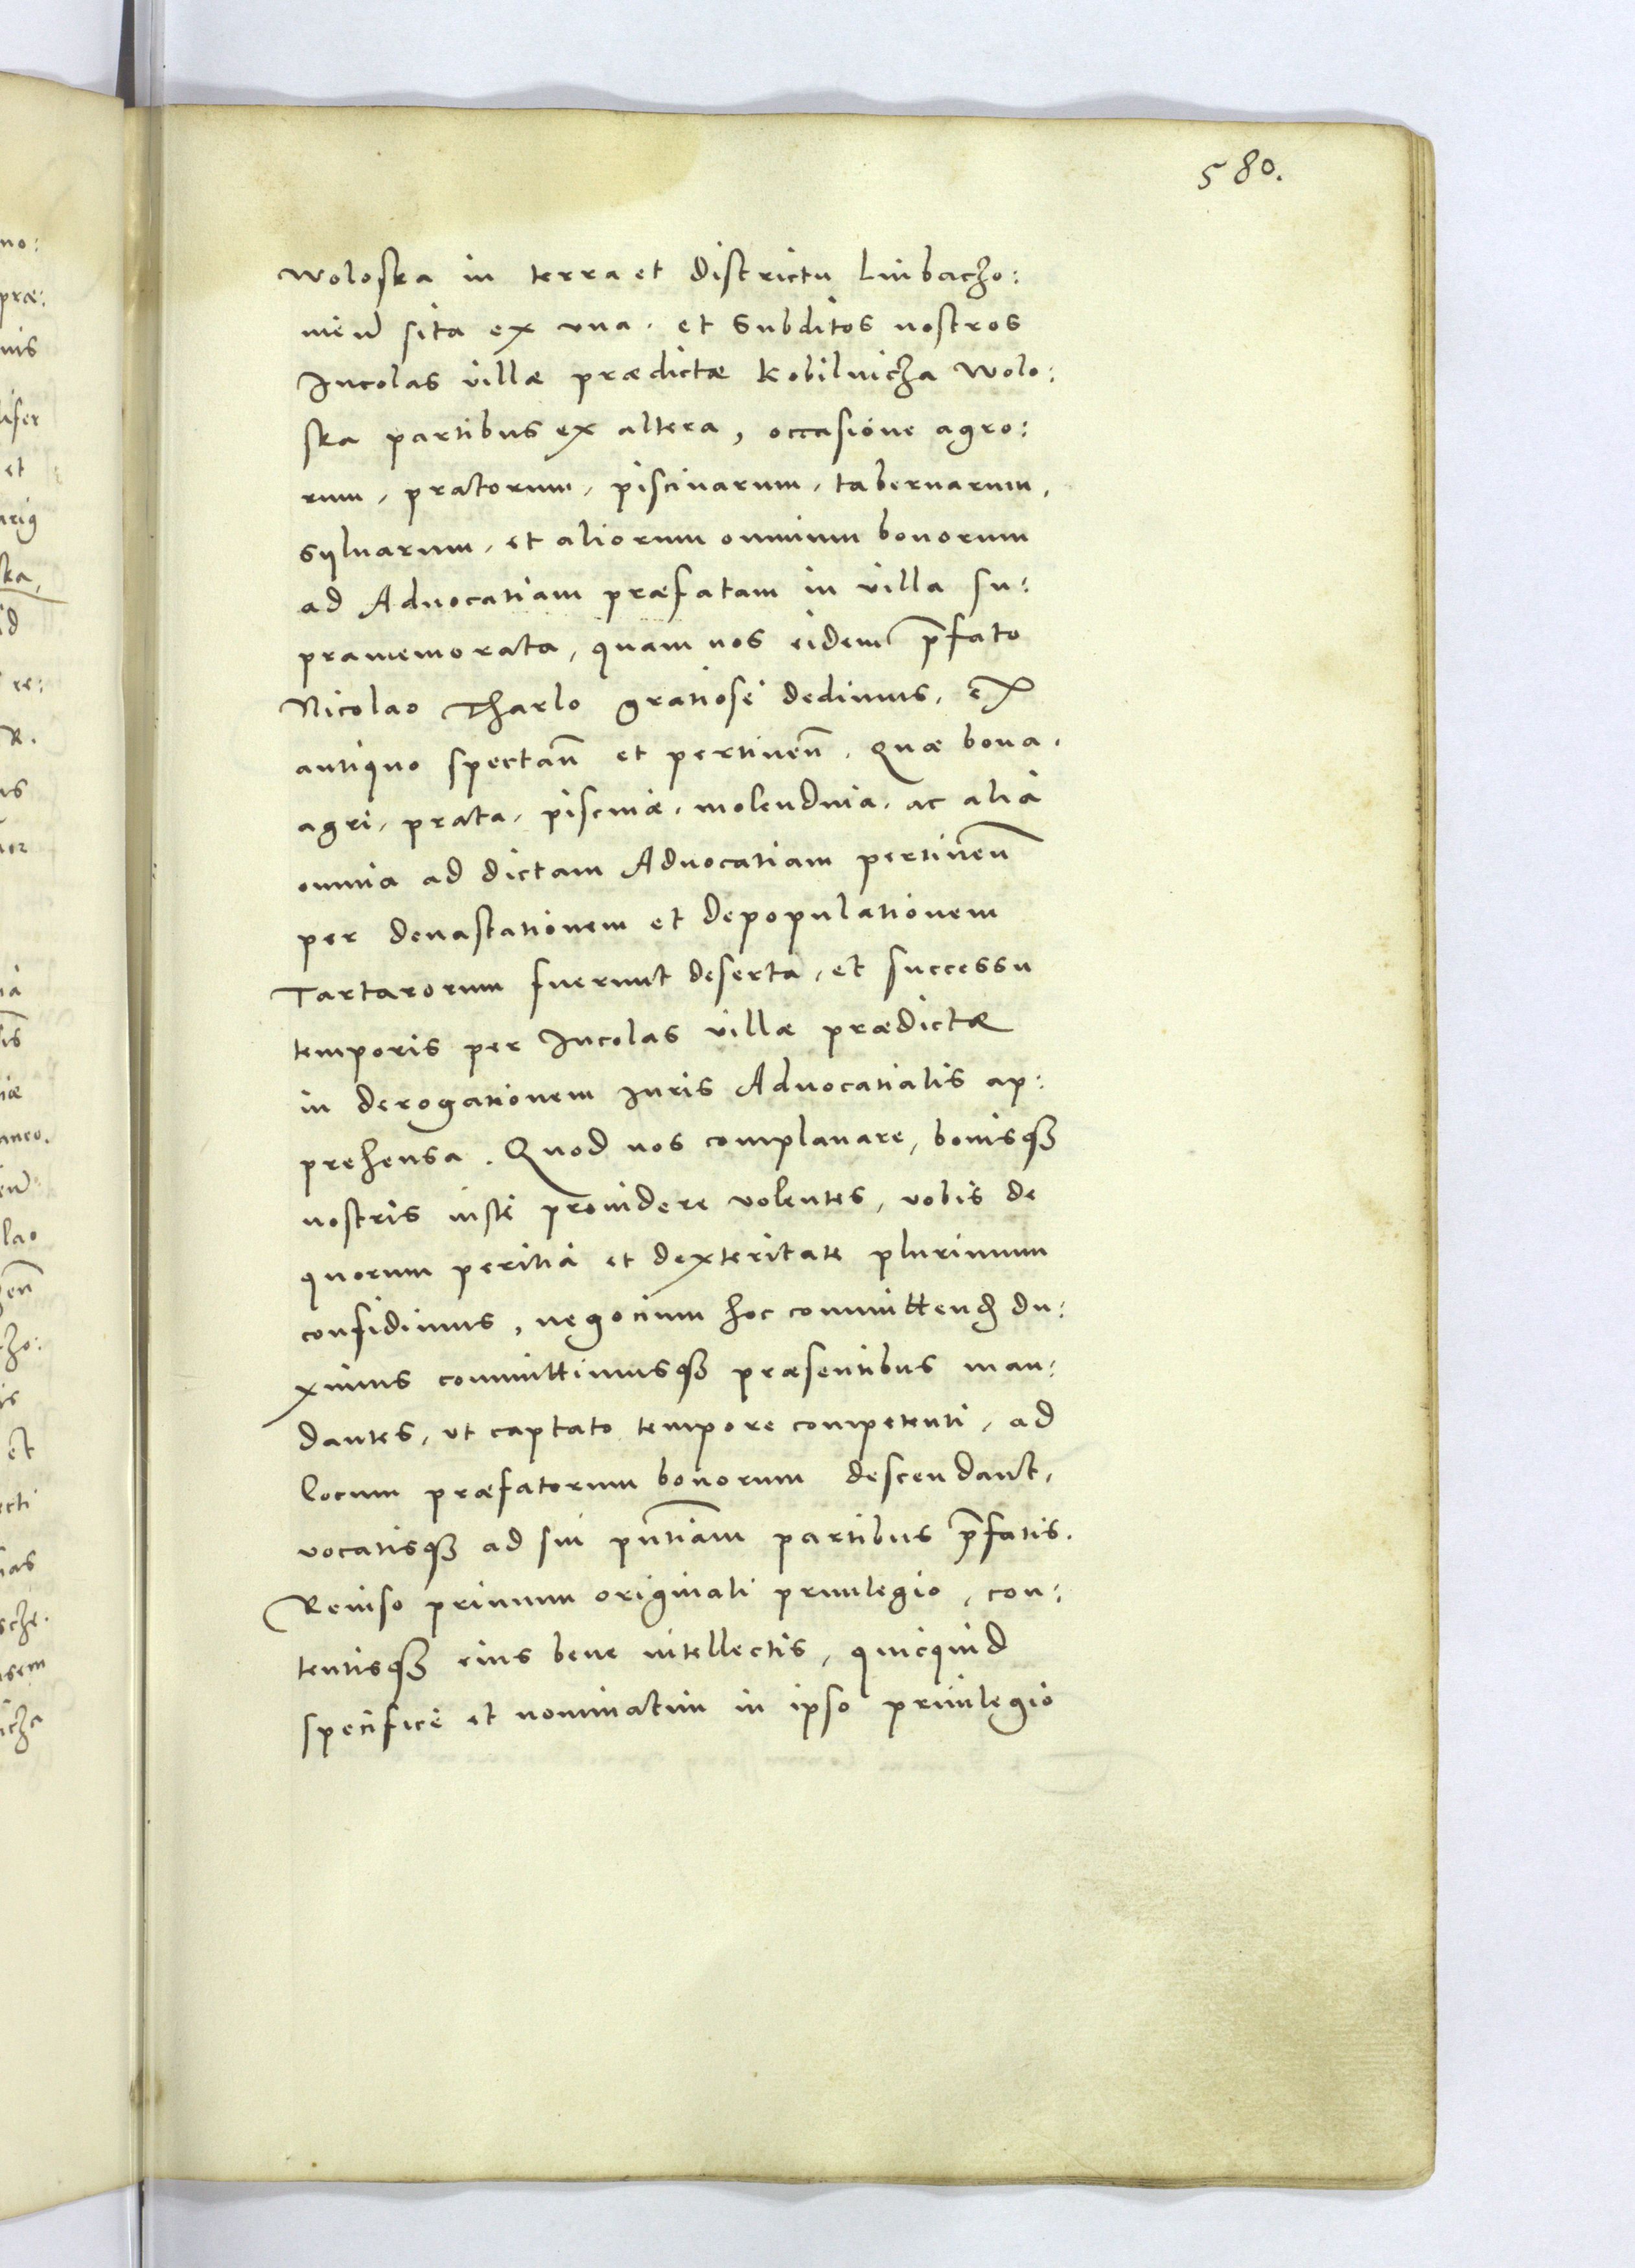 580.
Woloska in terra et districtu Liubaczo:
uien̄ sita ex vna. et Subditos nostros
Incolas villæ prædictæ Kobilnicza Wolo:
ska partibus ex altera, occasione agro:
rum, pratorum, piscinarum, tabernarum,
syluarum, et aliorum omnium bonorum
ad Aduocatiam præfatam in villa su:
pramemorata, quam nos eidem p̄fato
Nicolao Tharlo gratiosè dedimus, ex
antiquo spectan̄ et pertinen̄. Quæ bona.
agri, prata, piscinæ, molendina, ac alia
omnia ad dictam Aduocatiam pertinen̄
per deuastationem et depopulationem
Tartarorum fuerunt deserta, et successu
temporis per Incolas villæ prædictæ
in derogationem Iuris Aduocatialis ap:
prehensa. Quod nos complanare, bonisq3
nostris iustè prouidere volentes, vobis de
quorum peritia et dexteritate plurimum
confidimus, negocium hoc committend du:
ximus committimusq3 præsentibus man:
dantes, vt captato tempore competenti, ad
locum præfatorum bonorum descendant,
vocatisq3 ad sui pn̄tiam partibus p̄fatis.
Reuiso primum originali priuilegio, con:
tentisq3 eius bene intellectis, quicquid
specificè et nominatim in ipso priuilegio